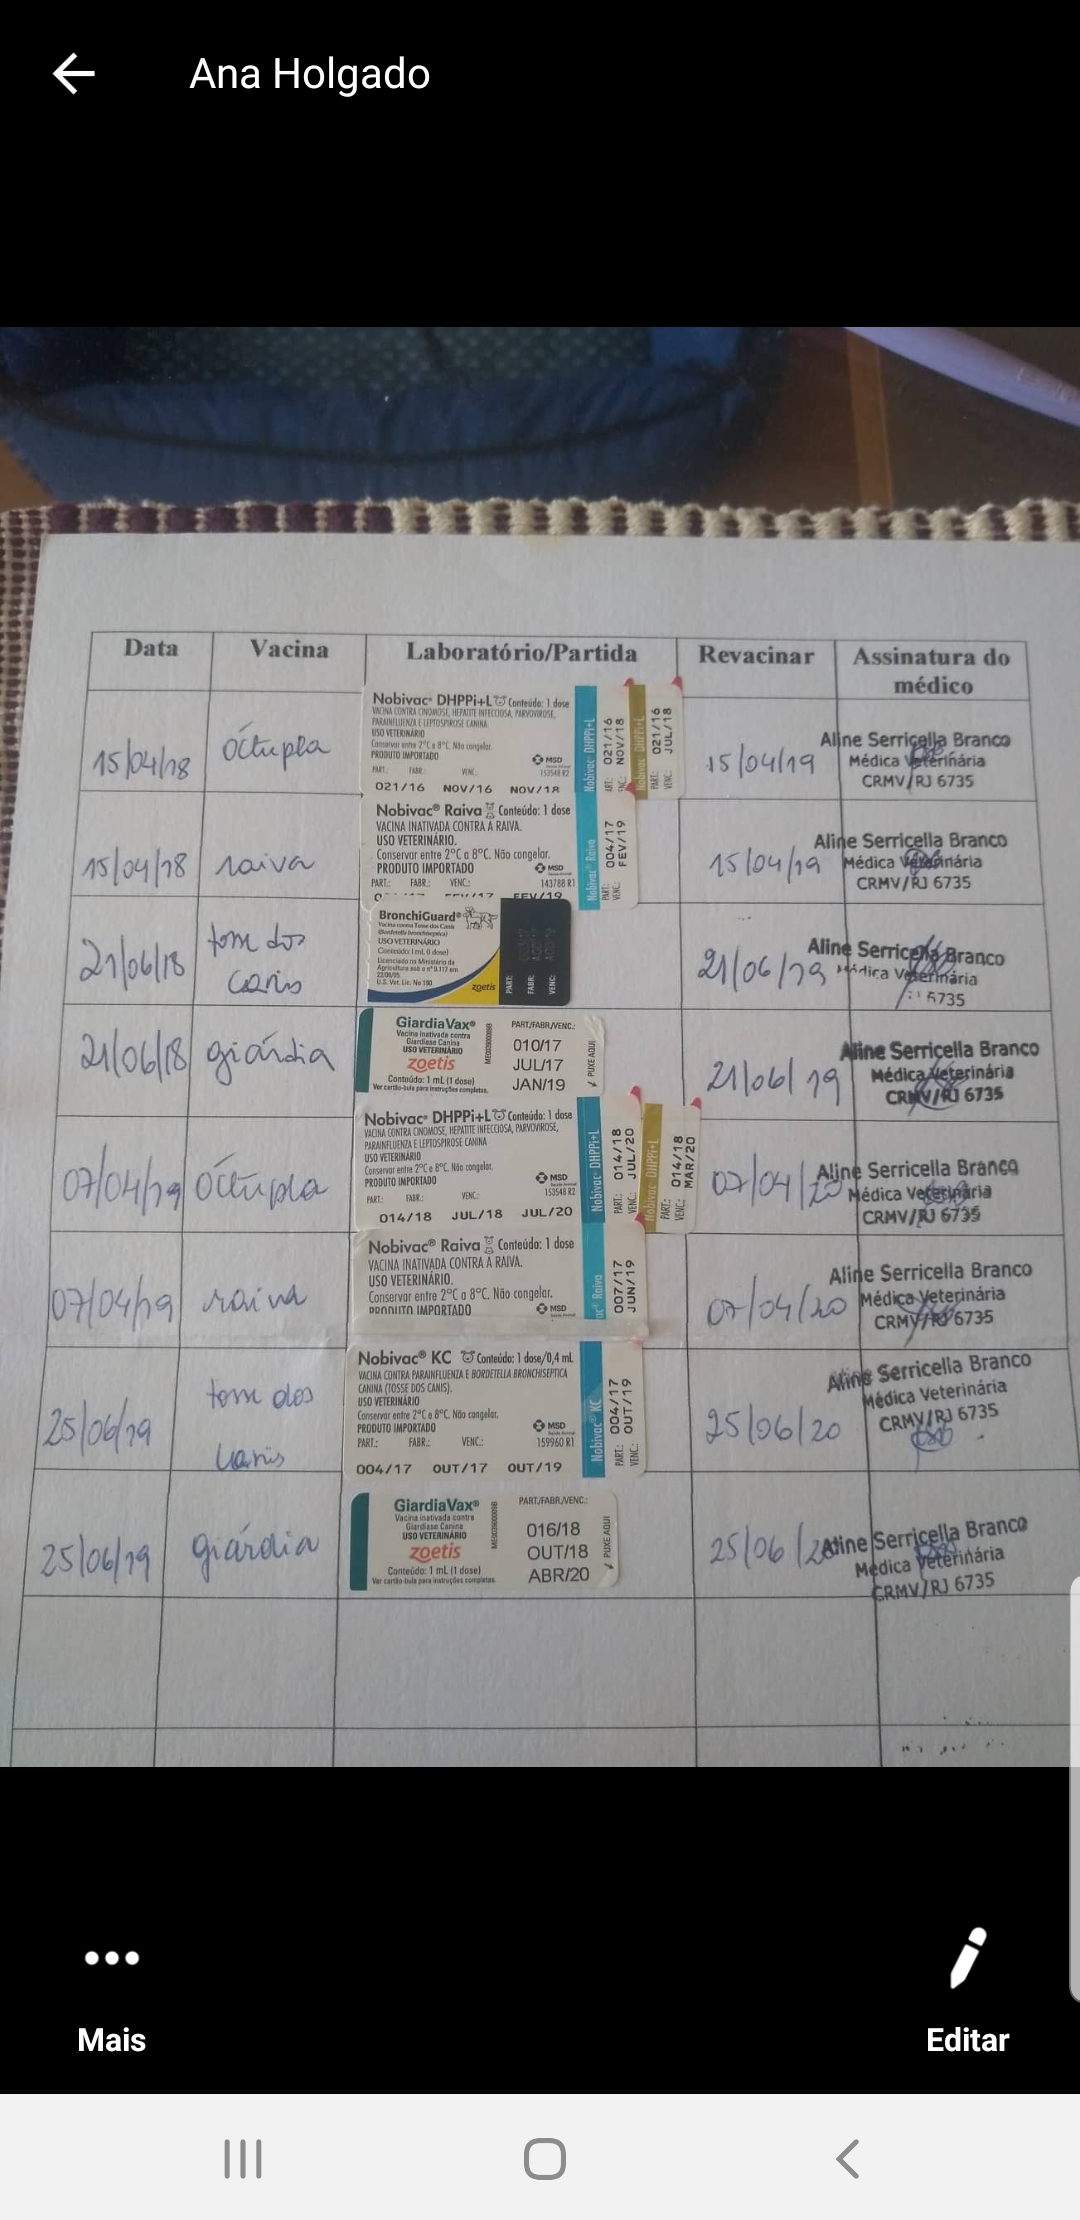 Ana Holgado
Data Vacina Laboratório/Partida Revacinar Assinatura do médico
15/04/18 Óctupla 15/04/19
Nobivac® DHPPi+L Conteúdo: 1 dose
VACINA CONTRA CINOMOSE, HEPATITE INFECCIOSA, PARVOVIROSE,
PARAINFLUENZA E LEPTOSPIROSE CANINA
USO VETERINÁRIO
Conservar entre 2°C e 8°C. Não congelar.
PRODUTO IMPORTADO
MSD
153548 R2
PART.: FABR.: VENC.:
021/16 NOV/16 NOV/18
Nobivac® DHPPi+L
021/16
NOV/18
Nobivac® DHPPi+L
PART.: 021/16
VENC.: JUL/18
Aline Serricella Branco
Médica Veterinária
CRMV/RJ 6735
15/04/18 raiva 15/04/19
Nobivac® Raiva Conteúdo: 1 dose
VACINA INATIVADA CONTRA A RAIVA.
USO VETERINÁRIO.
Conservar entre 2°C a 8°C. Não congelar.
PRODUTO IMPORTADO
MSD
143788 R1
PART.: FABR.: VENC.:
FEV/19
Nobivac® Raiva
PART.: 004/17
VENC.: FEV/19
Aline Serricella Branco
Médica Veterinária
CRMV/RJ 6735
21/06/18 21/06/19
BronchiGuard®
Vacina contra Tosse dos Canis
(Bordetella bronchiseptica)
USO VETERINÁRIO
Conteúdo: 1 mL (1 dose)
Licenciado no Ministério da
Agricultura sob o nº 9.117 em
22/08/05.
U.S. Vet. Lic. No 190
zoetis
PART.:
FABR.:
VENC.:
Aline Serricella Branco
Médica Veterinária
6735
21/06/18 giárdia 21/06/19
GiardiaVax®
Vacina inativada contra
Giardíase Canina
USO VETERINÁRIO
zoetis
Conteúdo: 1 mL (1 dose)
Ver cartão-bula para instruções completas.
PART./FABR./VENC.:
010/17
JUL/17
JAN/19
PUXE AQUI
Aline Serricella Branco
Médica Veterinária
CRMV/RJ 6735
07/04/19 Óctupla 07/04/20
Nobivac® DHPPi+L Conteúdo: 1 dose
VACINA CONTRA CINOMOSE, HEPATITE INFECCIOSA, PARVOVIROSE,
PARAINFLUENZA E LEPTOSPIROSE CANINA
USO VETERINÁRIO
Conservar entre 2°C e 8°C. Não congelar.
PRODUTO IMPORTADO
MSD
153548 R2
PART.: FABR.: VENC.:
014/18 JUL/18 JUL/20
Nobivac® DHPPi+L
PART.: 014/18
VENC.: JUL/20
Nobivac® DHPPi+L
PART.: 014/18
VENC.: MAR/20
Aline Serricella Branco
Médica Veterinária
CRMV/RJ 6735
07/04/19 raiva 07/04/20
Nobivac® Raiva Conteúdo: 1 dose
VACINA INATIVADA CONTRA A RAIVA.
USO VETERINÁRIO.
Conservar entre 2°C a 8°C. Não congelar.
PRODUTO IMPORTADO
MSD
Raiva
007/17
JUN/19
Aline Serricella Branco
Médica Veterinária
CRMV/RJ 6735
25/06/19 25/06/20
Nobivac® KC Conteúdo: 1 dose/0,4 mL
VACINA CONTRA PARAINFLUENZA E BORDETELLA BRONCHISEPTICA
CANINA (TOSSE DOS CANIS).
USO VETERINÁRIO
Conservar entre 2°C e 8°C. Não congelar.
PRODUTO IMPORTADO
MSD
159960 R1
PART.: FABR.: VENC.:
004/17 OUT/17 OUT/19
Nobivac® KC
PART.: 004/17
VENC.: OUT/19
Aline Serricella Branco
Médica Veterinária
CRMV/RJ 6735
25/06/19 giárdia 25/06/20
GiardiaVax®
Vacina inativada contra
Giardíase Canina
USO VETERINÁRIO
zoetis
Conteúdo: 1 mL (1 dose)
Ver cartão-bula para instruções completas.
PART./FABR./VENC.:
016/18
OUT/18
ABR/20
PUXE AQUI
Aline Serricella Branco
Médica Veterinária
CRMV/RJ 6735
Mais Editar